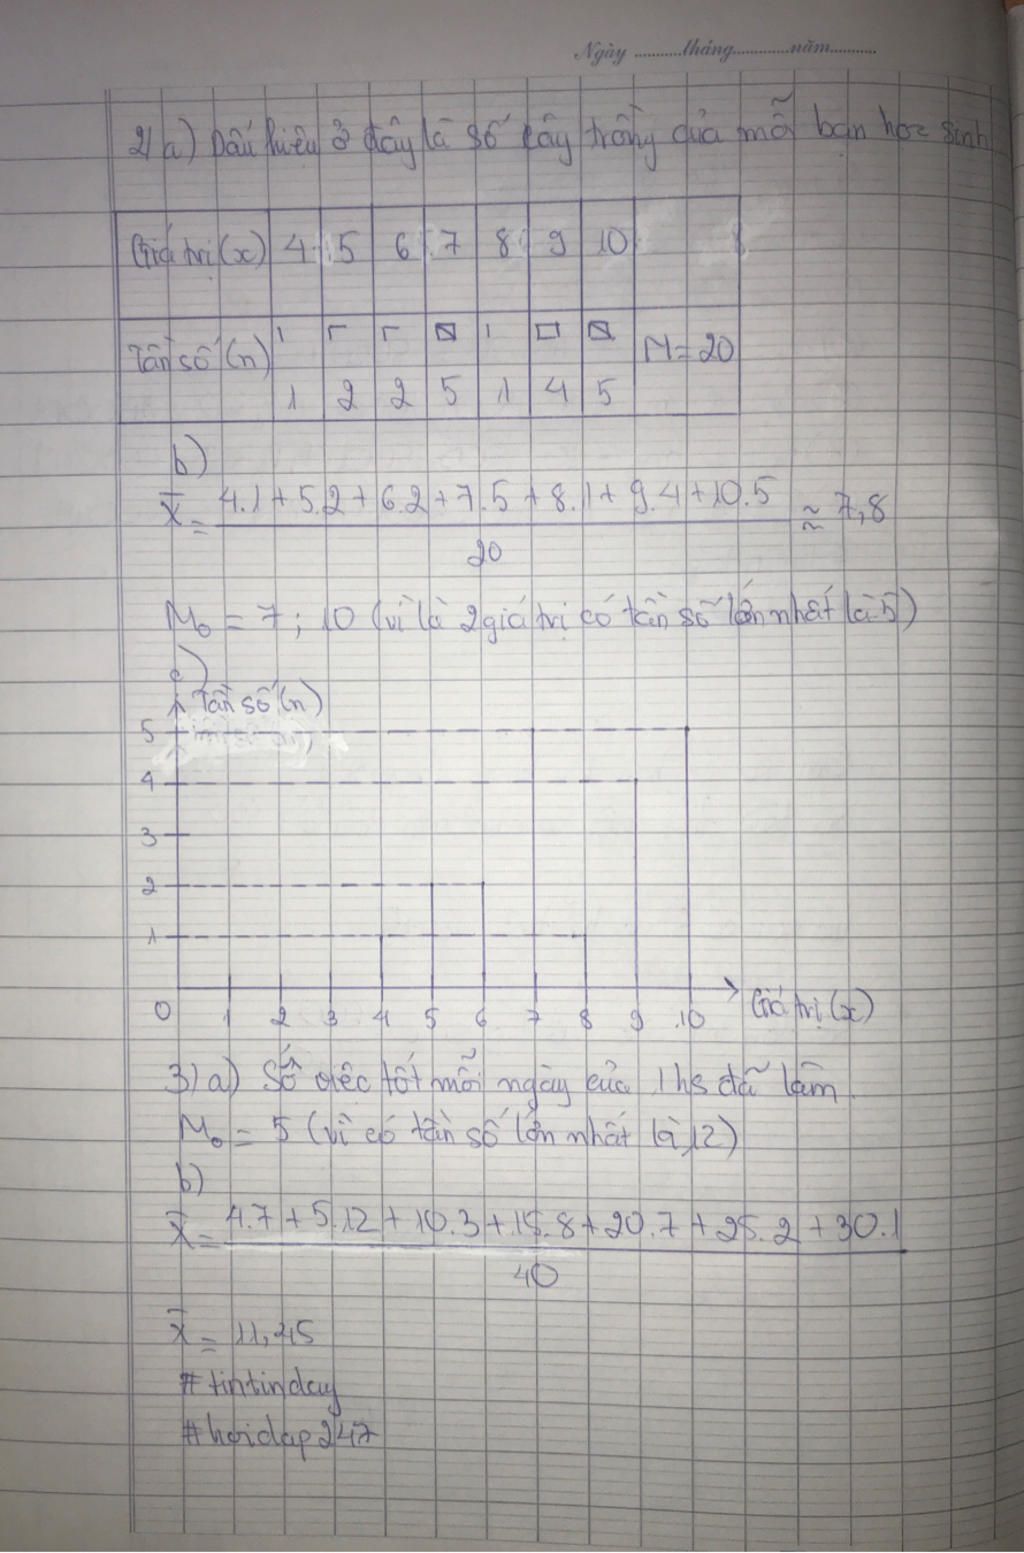 Ngày ...........tháng.............năm...........
2) a) Dấu hiệu ở đây là số cây trồng của mỗi bạn học sinh
Giá trị (x) 4 5 6 7 8 9 10
Tần số (n) N = 20
1 2 2 5 1 4 5
b)
X̄ = 4.1+5.2+6.2+7.5+8.1+9.4+10.5 ≈ 7,8
20
M₀ = 7; 10 (vì là 2 giá trị có tần số lớn nhất là 5)
c)
Tần số (n)
5
4
3
2
1
0 1 2 3 4 5 6 7 8 9 10 Giá trị (x)
3) a) Số việc tốt mỗi ngày của 1 hs đã làm.
M₀ = 5 (vì có tần số lớn nhất là 12)
b)
X̄ = 4.7+5.12+10.3+15.8+20.7+25.2+30.1
40
X̄ = 11,45
#tintinday
#hoidap247